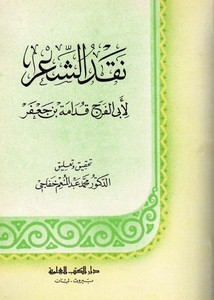 نقد الشعر
لأبي الفرج قدامة بن جعفر
تحقيق وتعليق
الدكتور محمد عبد المنعم خفاجي
دار الكتب العلمية
بيروت - لبنان